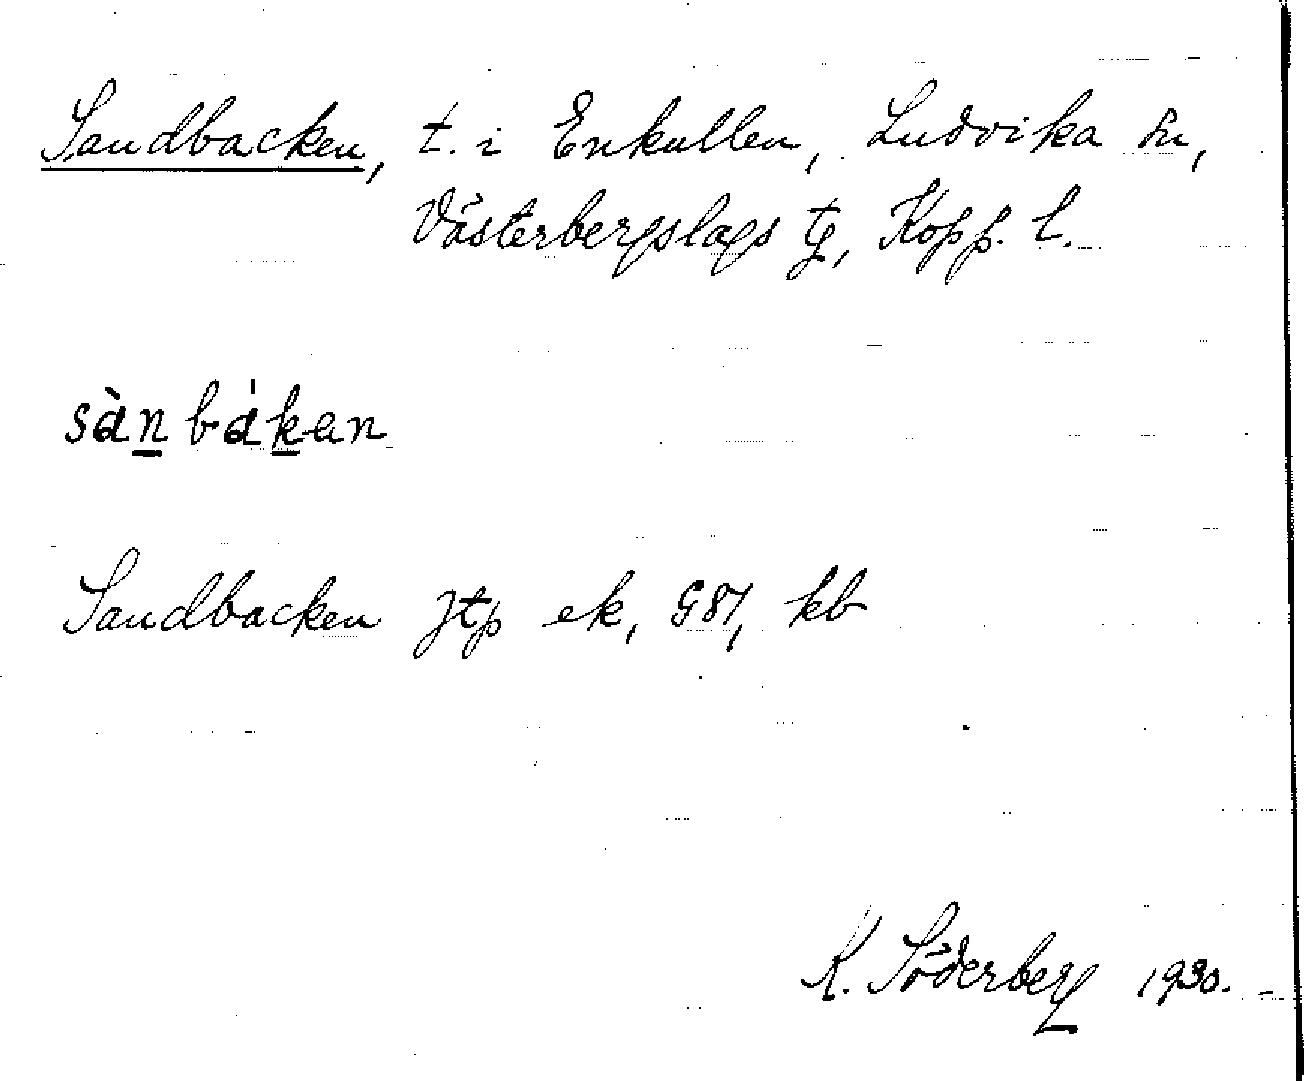 Sandbacken, t. i Enkullen, Ludvika sn,
Västerbergslags tg, Kopp. l.
sàn bákan
Sandbacken jtp ek, G87, kb
K. Söderberg 1930.